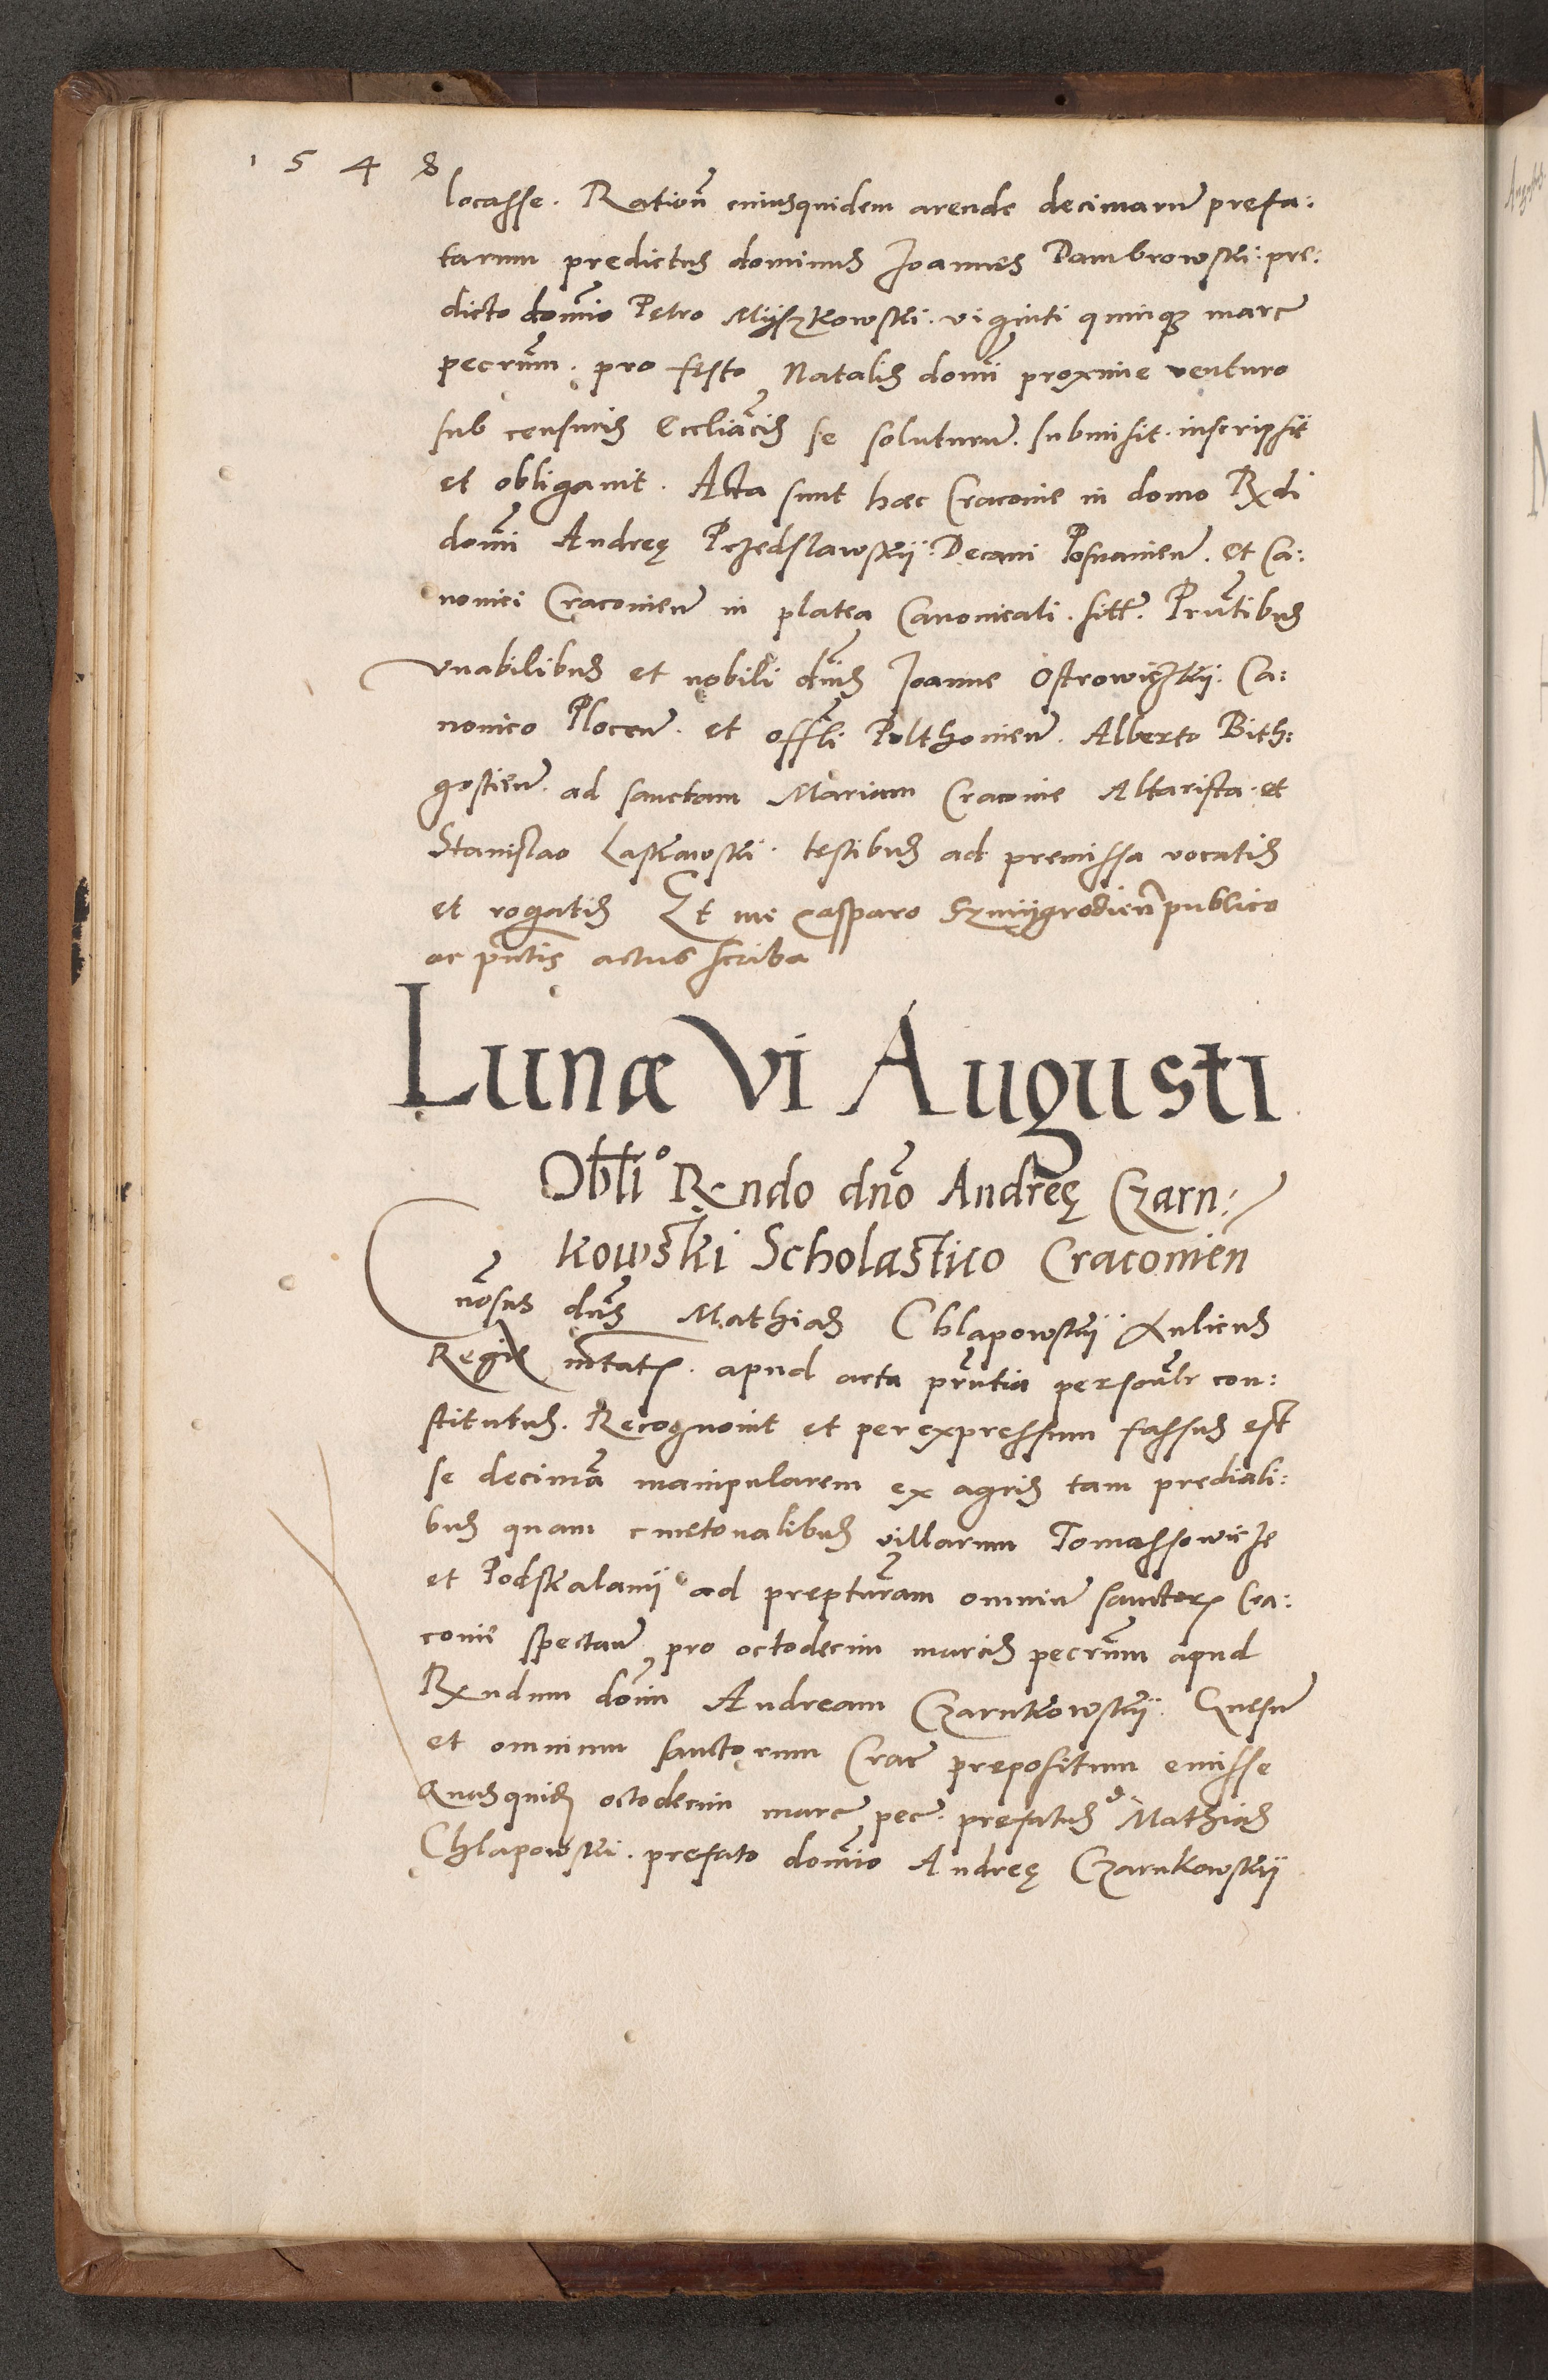 1 5 4 8
locasse. Ration̄ cuiusquidem arende decimarum prefa:
tarum predictus dominus Joannes Dambrowski. pre:
dicto domīo Petro Myszkowski. viginti quinq; marc
pecuniarum. pro festo Natalis domī proxime venturo
sub censuris Ecclīacis se soluturum. submisit. inscripsit
et obligavit. Acta sunt hæc Cracovie in domo Rx̄di
domī Andreę Przedslawskij. Decani Posnanien̄. et Ca:
nonici Cracovien̄ in platea Canonicali. sitt. Prn̄tibus
vn̄abilibus et nobili dnīs Joanne Ostrowiczkij. Ca:
nonico Plocen̄. et offīli Polthovien̄. Alberto Bith:
gostien̄. ad sanctam Mariam Cracovie Altarista. et
Stanislao Laskowski. testibus ad premissa vocatis
et rogatis Et me Casparo Szmijgrodien̄ publico
ac prn̄tis actus scriba
Lunæ VI Augusti
Oblī° Rendo dn̄o Andreę Czarn:
kowski Scholastico Cracovien
Gn̄osus dn̄s Mathias Chlapowskij Aulicus
Regiæ mtatis. apud acta prn̄tia personālr con:
stitutus. Recognovit et per expressum fassus est
se decimā manipularem ex agris tam prediali:
bus quam cmetonalibus villarum Tomassowicze
et Podskalanij ad prepturam omnium sanctorum Cra:
covie spectan̄ pro octodecim marcis pecuniarum apud
Rx̄ndum domīn Andream Czarnkowskij. Gnesn̄
et omnium sanctorum Crac prepositum emisse
Quasquidem octodecim marc pec. prefatus d. Mathias
Chlapowski. prefato domīo Andreę Czarnkowskij